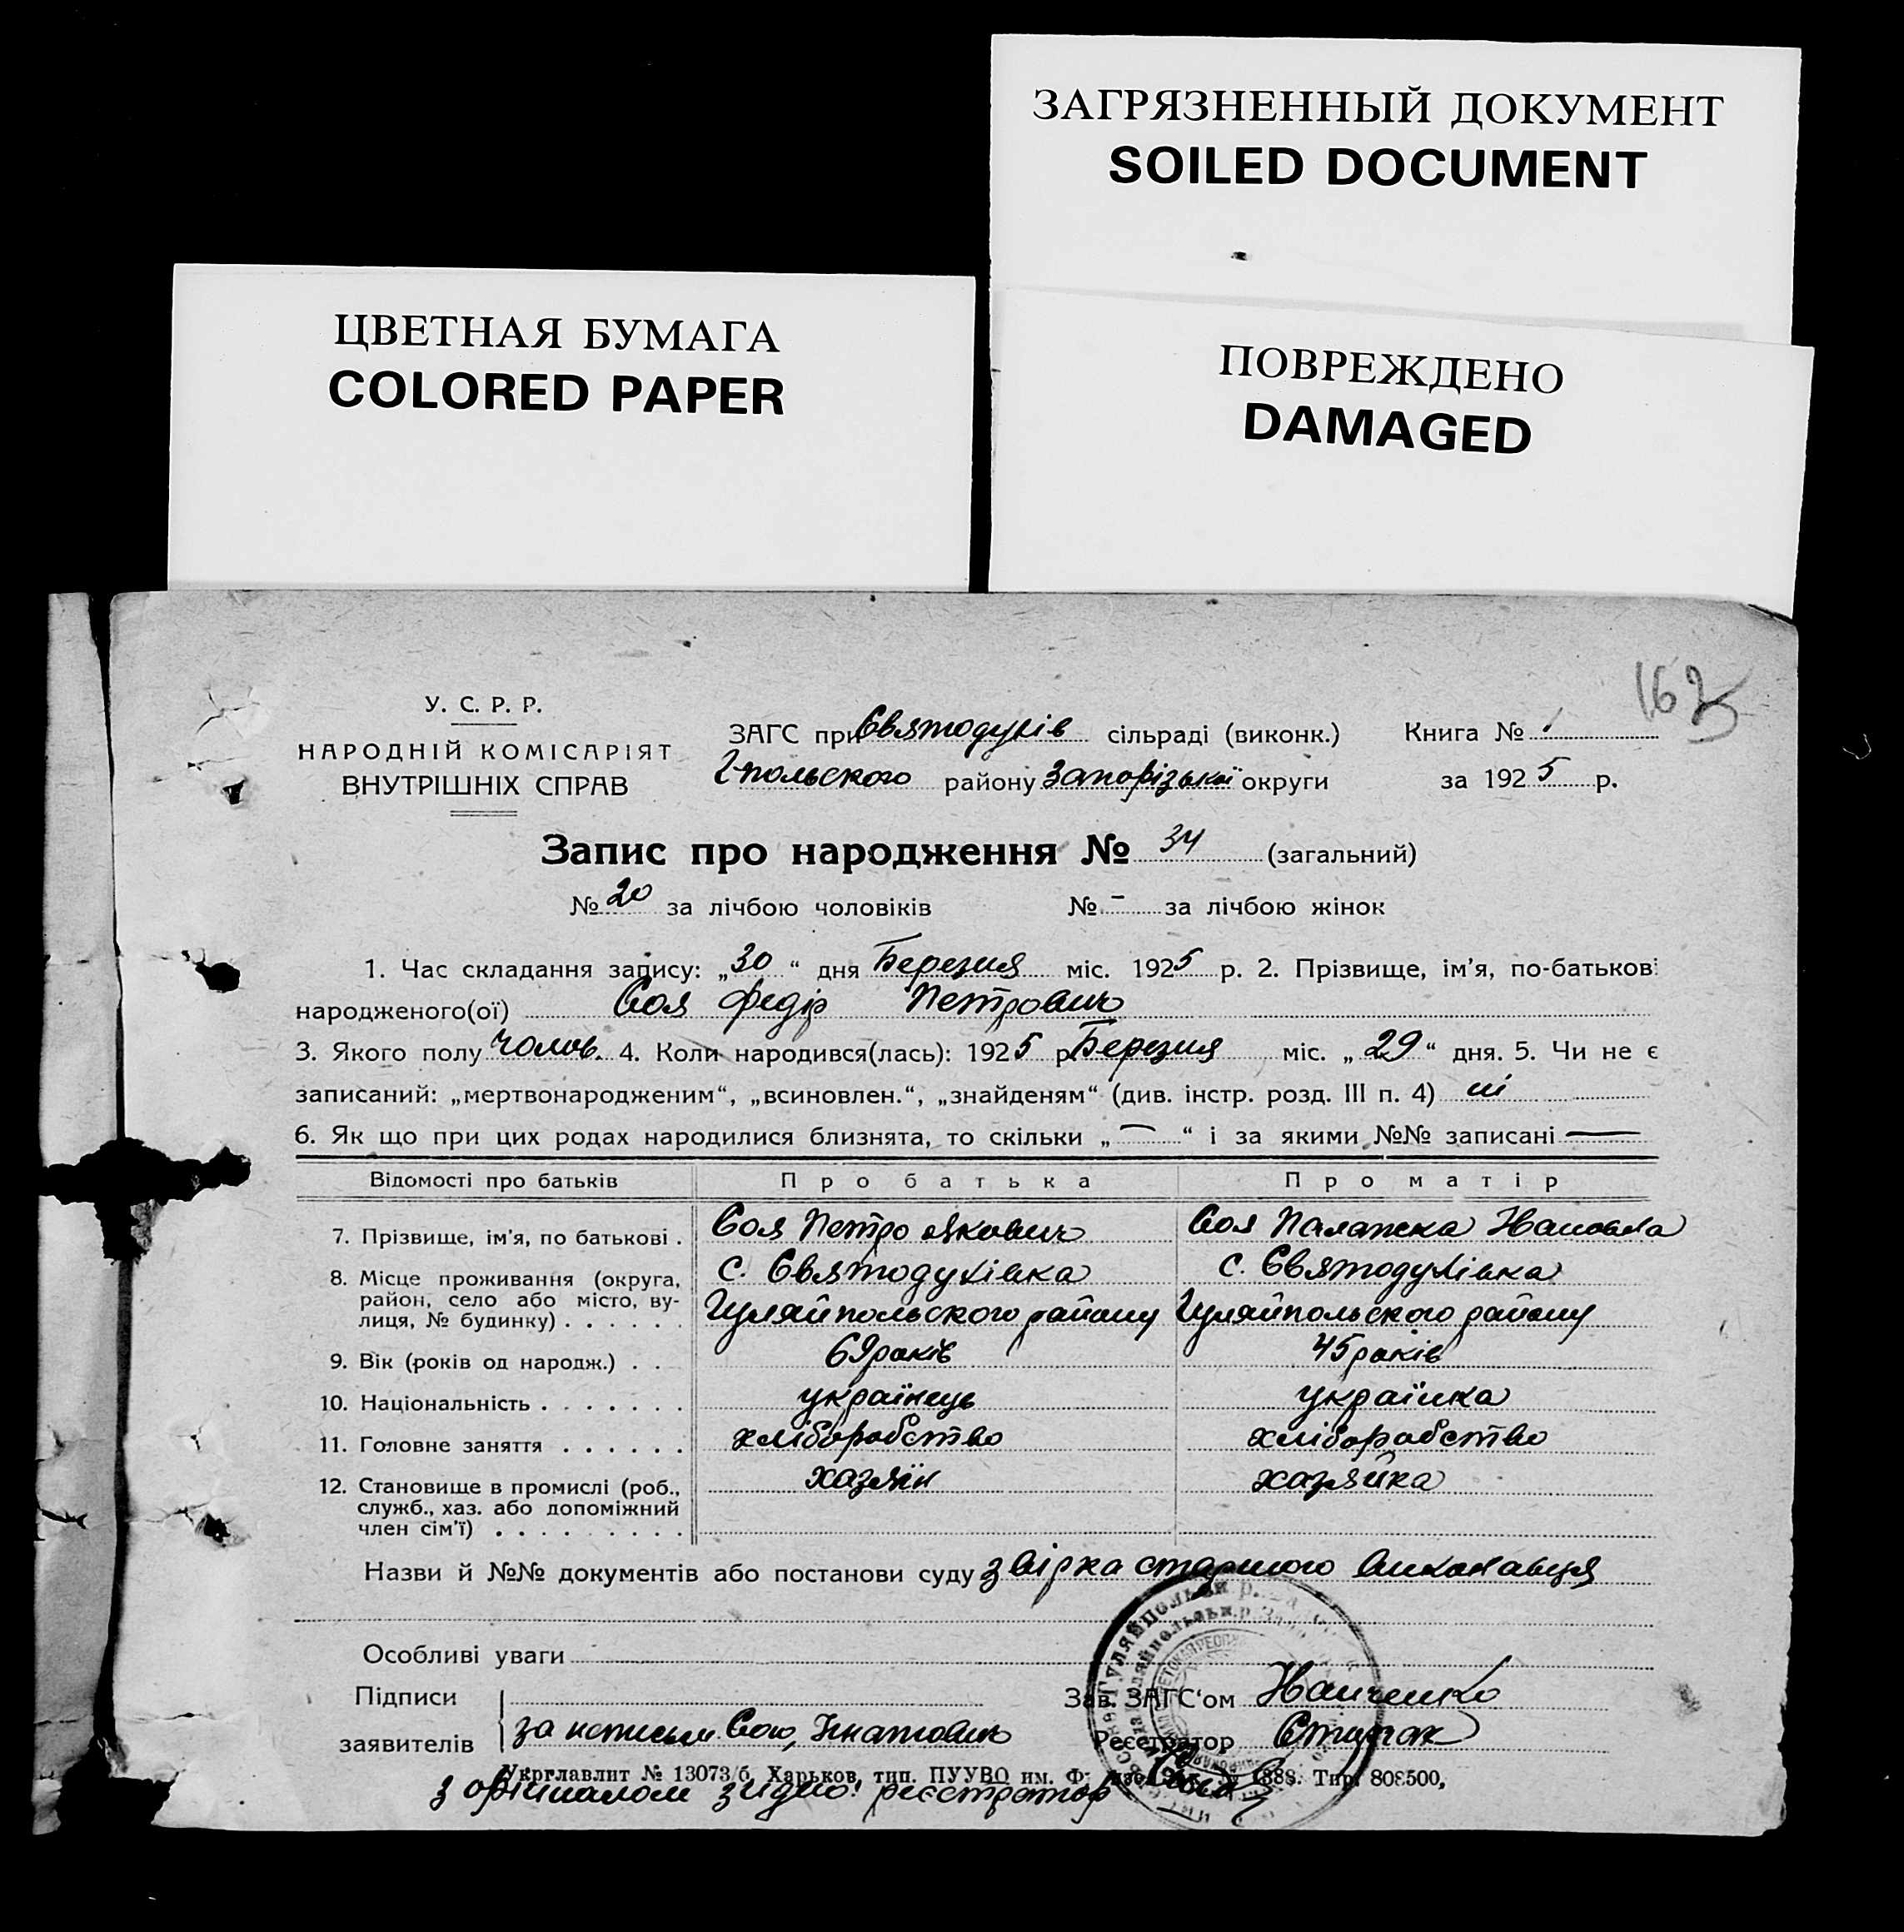 ЗАГРЯЗНЕННЫЙ ДОКУМЕНТ
SOILED DOCUMENT
ЦВЕТНАЯ БУМАГА
COLORED PAPER
ПОВРЕЖДЕНО
DAMAGED
У. С. Р. Р.
НАРОДНІЙ КОМІСАРІЯТ
ВНУТРІШНІХ СПРАВ
ЗАГС при Святодухів сільраді (виконк.) Книга № 1
Г-польского району Запорізької округи за 1925 р.
Запис про народження № 34 (загальний)
№ 20 за лічбою чоловіків № - за лічбою жінок
1. Час складання запису: „30“ дня Березня міс. 1925 р. 2. Прізвище, ім’я, по-батькові
народженого(ої) Соя Федір Петрович
3. Якого полу чолов. 4. Коли народився(лась): 1925 р Березня міс. „29“ дня. 5. Чи не є
записаний: „мертвонародженим“, „всиновлен.“, „знайденям“ (див. інстр. розд. III п. 4) ні
6. Як що при цих родах народилися близнята, то скільки „—“ і за якими №№ записані —
Відомості про батьків Про батька Про матір
7. Прізвище, ім’я, по батькові . Соя Петро Якович Соя Палажка Івановна
8. Місце проживання (округа, с. Святодухівка с. Святодухівка
район, село або місто, ву-
лиця, № будинку) . . . . . . Гуляйпольского району Гуляйпольского району
9. Вік (років од народж.) . . 69 років 45 років
10. Національність . . . . . . . українець українка
11. Головне заняття . . . . . . хліборобство хліборобство
12. Становище в промислі (роб., хазяїн хазяйка
служб., хаз. або допоміжний
член сім’ї) . . . . . . . . .
Назви й №№ документів або постанови суду звірка старшого виконавця
Особливі уваги
Підписи Зав. ЗАГС‘ом Іванченко
заявителів за неписьм. Сою, Реєстратор
Укрглавлит № 13073/б. Харьков, тип. ПУУВО им. Ф. 1888. Тир. 808500.
з оригіналом згідно: реєстратор